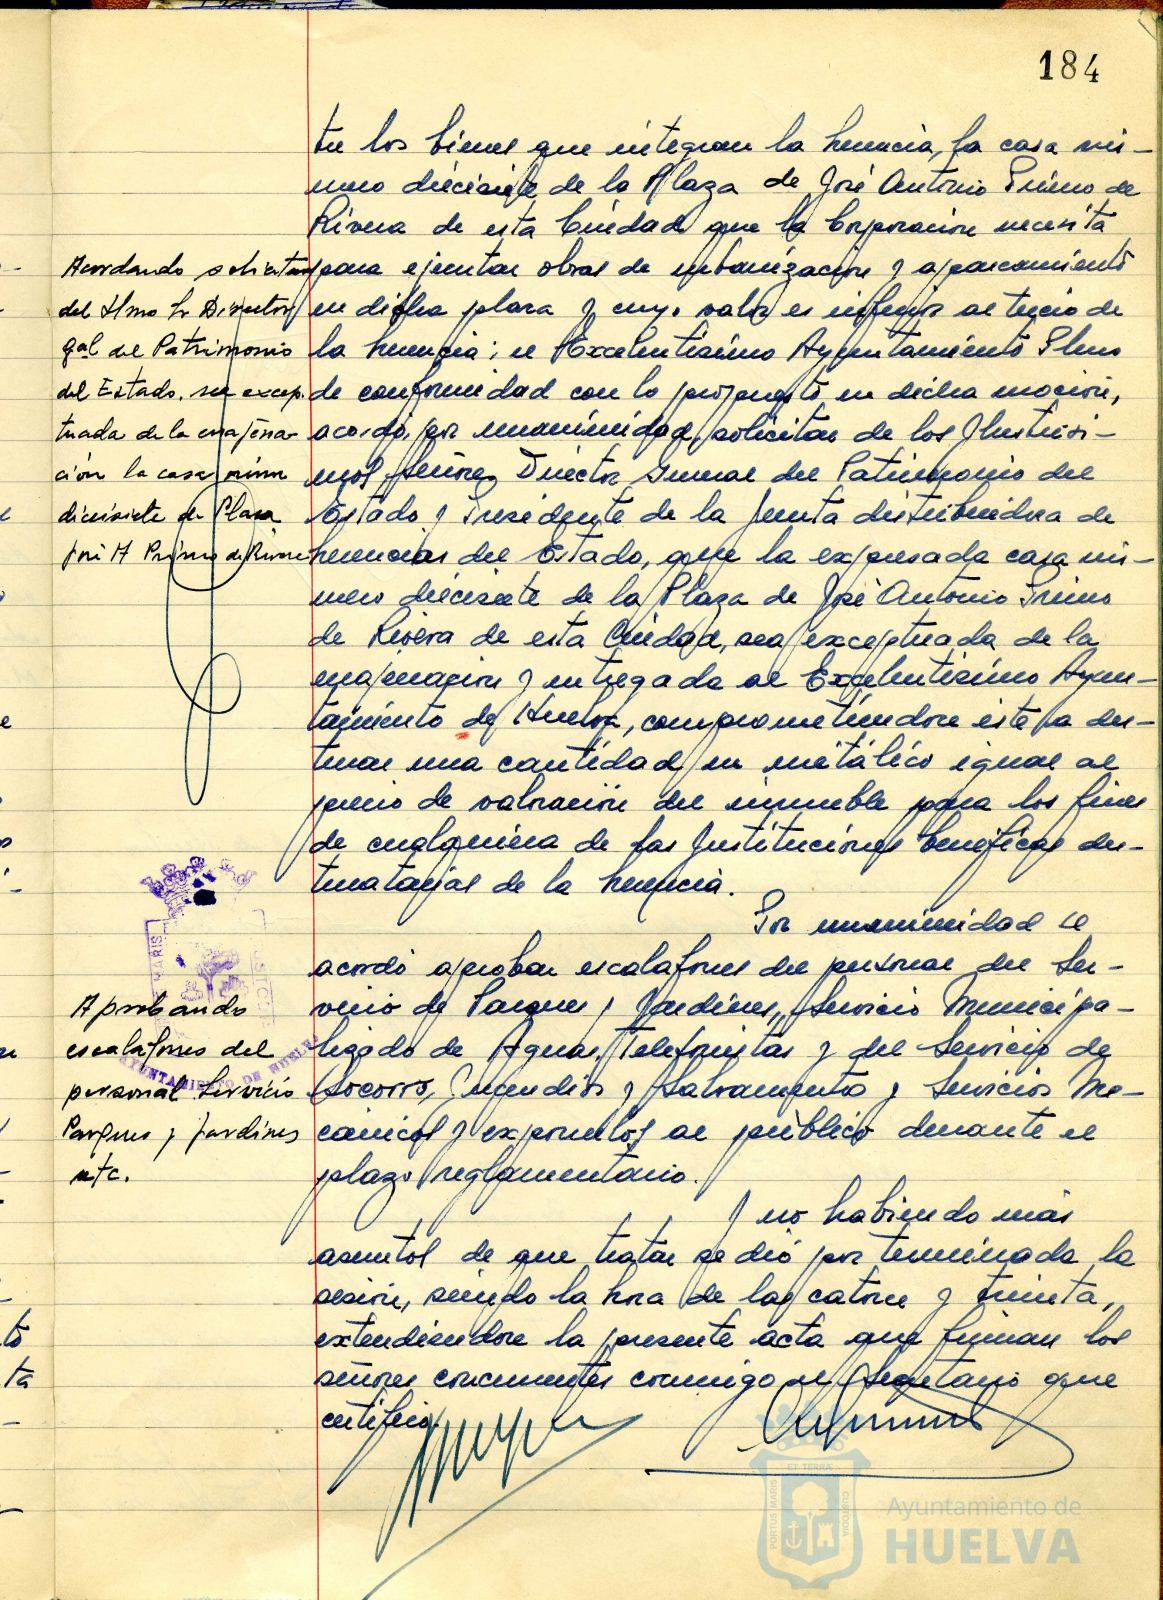 184
tre los bienes que integran la herencia, la casa nú-
mero diecisiete de la Plaza de José Antonio Primo de
Rivera de esta Ciudad que la Corporación necesita
para ejecutar obras de urbanización y aparcamiento
en dicha plaza y cuyo valor es inferior al tercio de
la herencia; el Excelentísimo Ayuntamiento Pleno
de conformidad con lo propuesto en dicha moción,
acordó, por unanimidad, solicitar de los Ilustrísi-
mos Señores Director General del Patrimonio del
Estado y Presidente de la Junta distribuidora de
herencias del Estado, que la expresada casa nú-
mero diecisiete de la Plaza de José Antonio Primo
de Rivera de esta Ciudad, sea exceptuada de la
enajenación y entregada al Excelentísimo Ayun-
tamiento de Huelva, comprometiéndose éste a des-
tinar una cantidad en metálico igual al
precio de valoración del inmueble para los fines
de cualquiera de las Instituciones benéficas des-
tinatarias de la herencia.
Por unanimidad se
acordó aprobar escalafones del personal del Ser-
vicio de Parques y Jardines, Servicio Municipa-
lizado de Aguas, Telefonistas y del Servicio de
Socorro, Incendios y Salvamento y Servicios Me-
cánicos y exponerlos al público durante el
plazo reglamentario.
Y no habiendo más
asuntos de que tratar se dió por terminada la
sesión, siendo la hora de las catorce y treinta,
extendiéndose la presente acta que firman los
señores concurrentes conmigo el Secretario que
certifico.
Acordando solicitar
del Ilmo Sr Director
gral del Patrimonio
del Estado. sea excep.
tuada de la enajena-
ción la casa núm
diecisiete de Plaza
José A Primo de Rivera
Aprobando
escalafones del
personal Servicio
Parques y jardines
etc.
MARIS
AYUNTAMIENTO DE HUELVA
ET TERRÆ
PORTUS MARIS
CUSTODIA
Ayuntamiento de
HUELVA